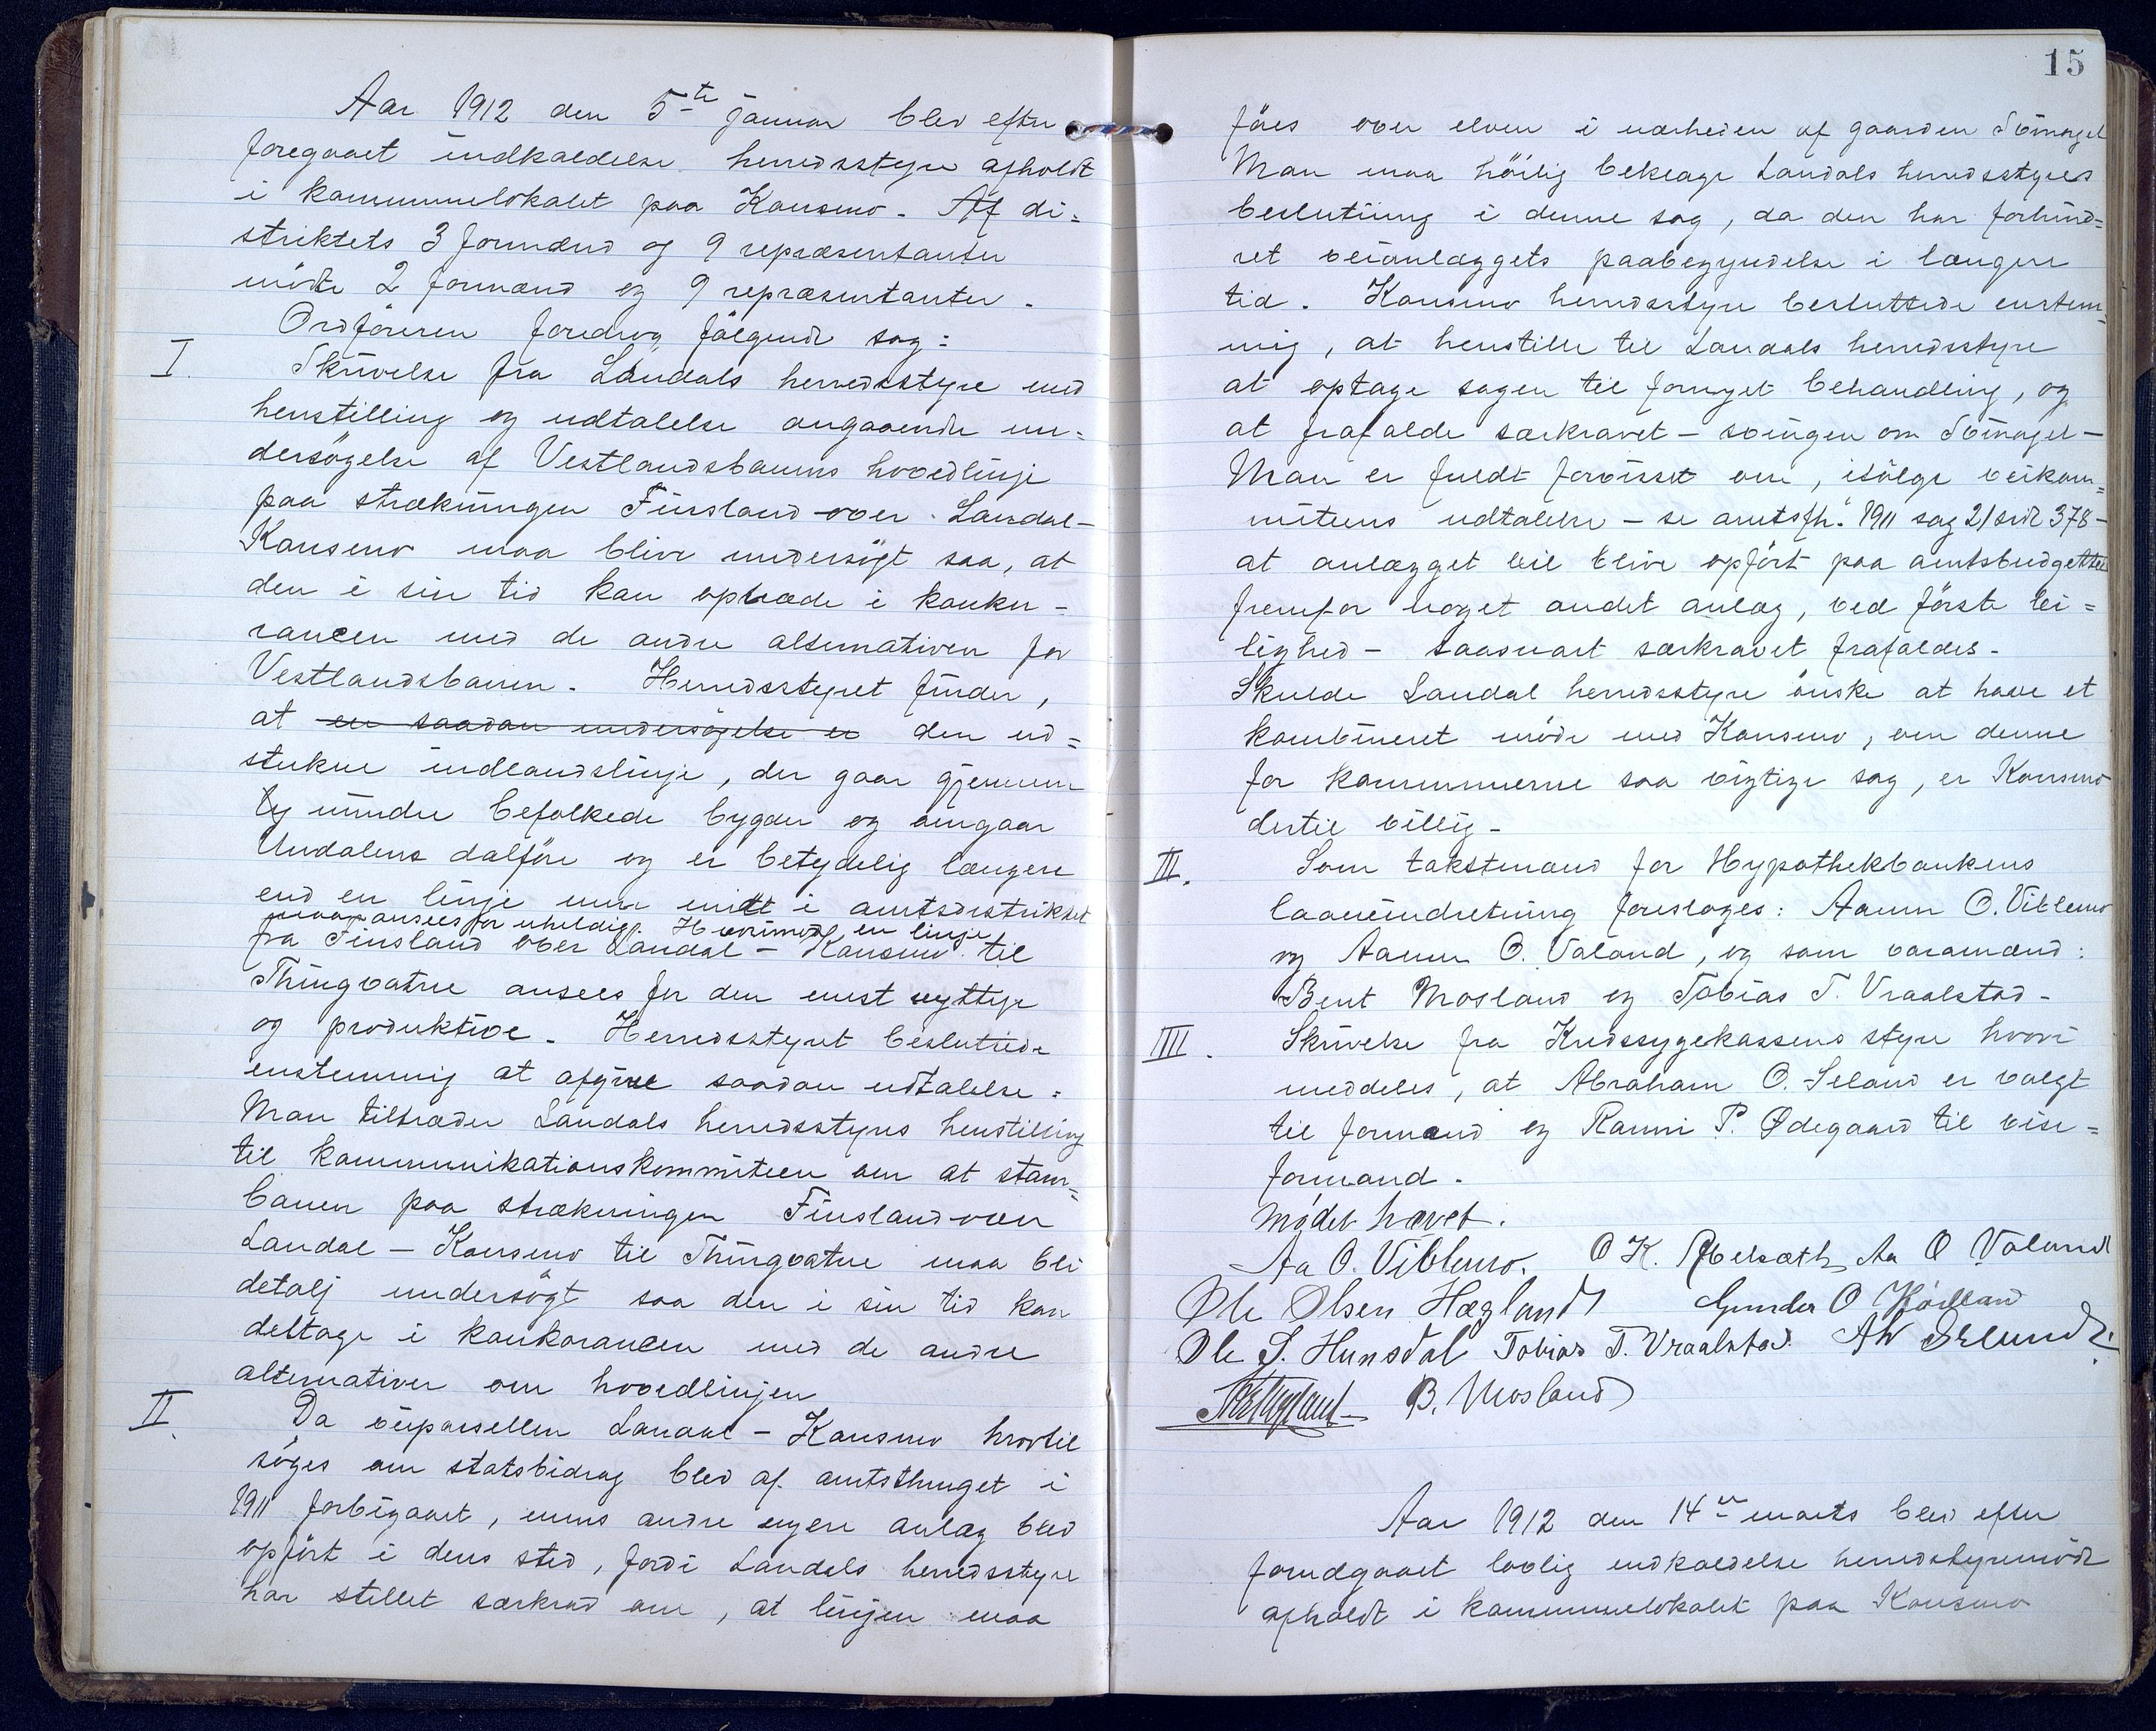 Aar 1912 den 5te januar blev efter
foregaaet indkaldelse herredsstyre afholdt
i kommunelokalet paa Konsmo. Af di=
striktets 3 formænd og 9 repræsentanter
mödte 2 formænd og 9 repræsentanter.
Ordföreren foredrog fölgende sag:
I. Skrivelse fra Laudals herredsstyre med
henstilling og udtalelse angaaende un=
dersögelse af Vestlandsbanens hovedlinje
paa strækningen Finsland over Laudal-
Konsmo maa blive undersögt saa, at
den i sin tid kan optræde i konku-
rancen med de andre alternativer for
Vestlandsbanen. Herredsstyret finder,
at en saadan undersögelse er den ud=
stukne indlandslinje, der gaar gjennem
ty mindre befolkede bygder og omgaar
Undalens dalföre og er betydelig længere
end en linje mer midt i amtsdistriktet
maa ansees for uheldig. Hvorimod en linje
fra Finsland over Laudal - Konsmo til
Thingvatne ansees for den mest nyttige
og produktive. Herredsstyret besluttede
enstemmig at afgive saadan udtalelse:
Man tiltræder Laudals herredsstyres henstilling
til kommunikationskommiteen om at stam=
banen paa strækningen Finsland over
Laudal - Konsmo til Thingvatne maa bli
detalj undersögt saa den i sin tid kan
deltage i konkorancen med de andre
alternativer om hovedlinjen
II. Da veiparsellen Laudal - Konsmo hvortil
söges om statsbidrag blev af amtsthinget i
1911 forbigaaet, mens andre nyere anlæg blev
opfört i dens sted, fordi Laudals herredsstyre
har stillet særkrav om, at linjen maa
15
föres over elven i nærheden af gaarden Svinagel
Man maa höilig beklage Laudals herredsstyres
beslutning i denne sag, da den har forhind=
ret veianlæggets paabegyndelse i længere
tid. Konsmo herredsstyre besluttede enstem=
mig, at henstille til Laudals herredsstyre
at optage sagen til fornyet behandling, og
at frafalde særkravet - svingen om Svinagel -
Man er fuldt forvisset om, ifölge veikom=
miteens udtalelse - se amtsfh. 1911 sag 21 side 378 -
at anlægget vil blive opfört paa amtsbudgettet
fremfor noget andet anlæg, ved förste lei=
lighed - saasnart særkravet frafaldes.
Skulde Laudal herredsstyre önske at have et
kombineret möde med Konsmo, om denne
for kommunerne saa vigtige sag, er Konsmo
dertil villig -
III. Som takstmænd for Hypothekbankens
laaneindretning foreslages: Aanen O. Viblemo
og Aanen O. Valand, og som varamænd:
Bent Mosland og Tobias T. Vraalstad -
IIII. Skrivelse fra Kredssygekassens styre hvori
meddeles, at Abraham O. Seland er valgt
til formand og Ranni P. Ødegaard til vise=
formand.
Mødet hævet.
Aa O. Viblemo. O K. Abelsæth Aa O Valand
Ole Olsen Hægland Gunder O Kjølland
Ole S. Hunsdal Tobias T. Vraalstad.
B. Mosland
Aar 1912 den 14de marts blev efter
forudgaaet lovlig indkaldelse herredsstyremöde
afholdt i kommunelokalet paa Konsmo